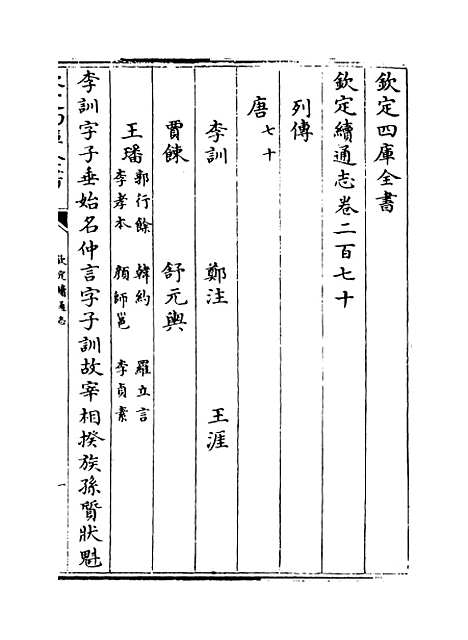 欽定四庫全書
欽定續通志卷二百七十
列傳
唐七十
李訓 鄭注 王涯
賈餗 舒元輿
王璠郭行餘 韓約 羅立言
李孝本 顏師邕 李貞素
李訓字子垂始名仲言字子訓故宰相揆族孫質狀魁
欽定續通志
一